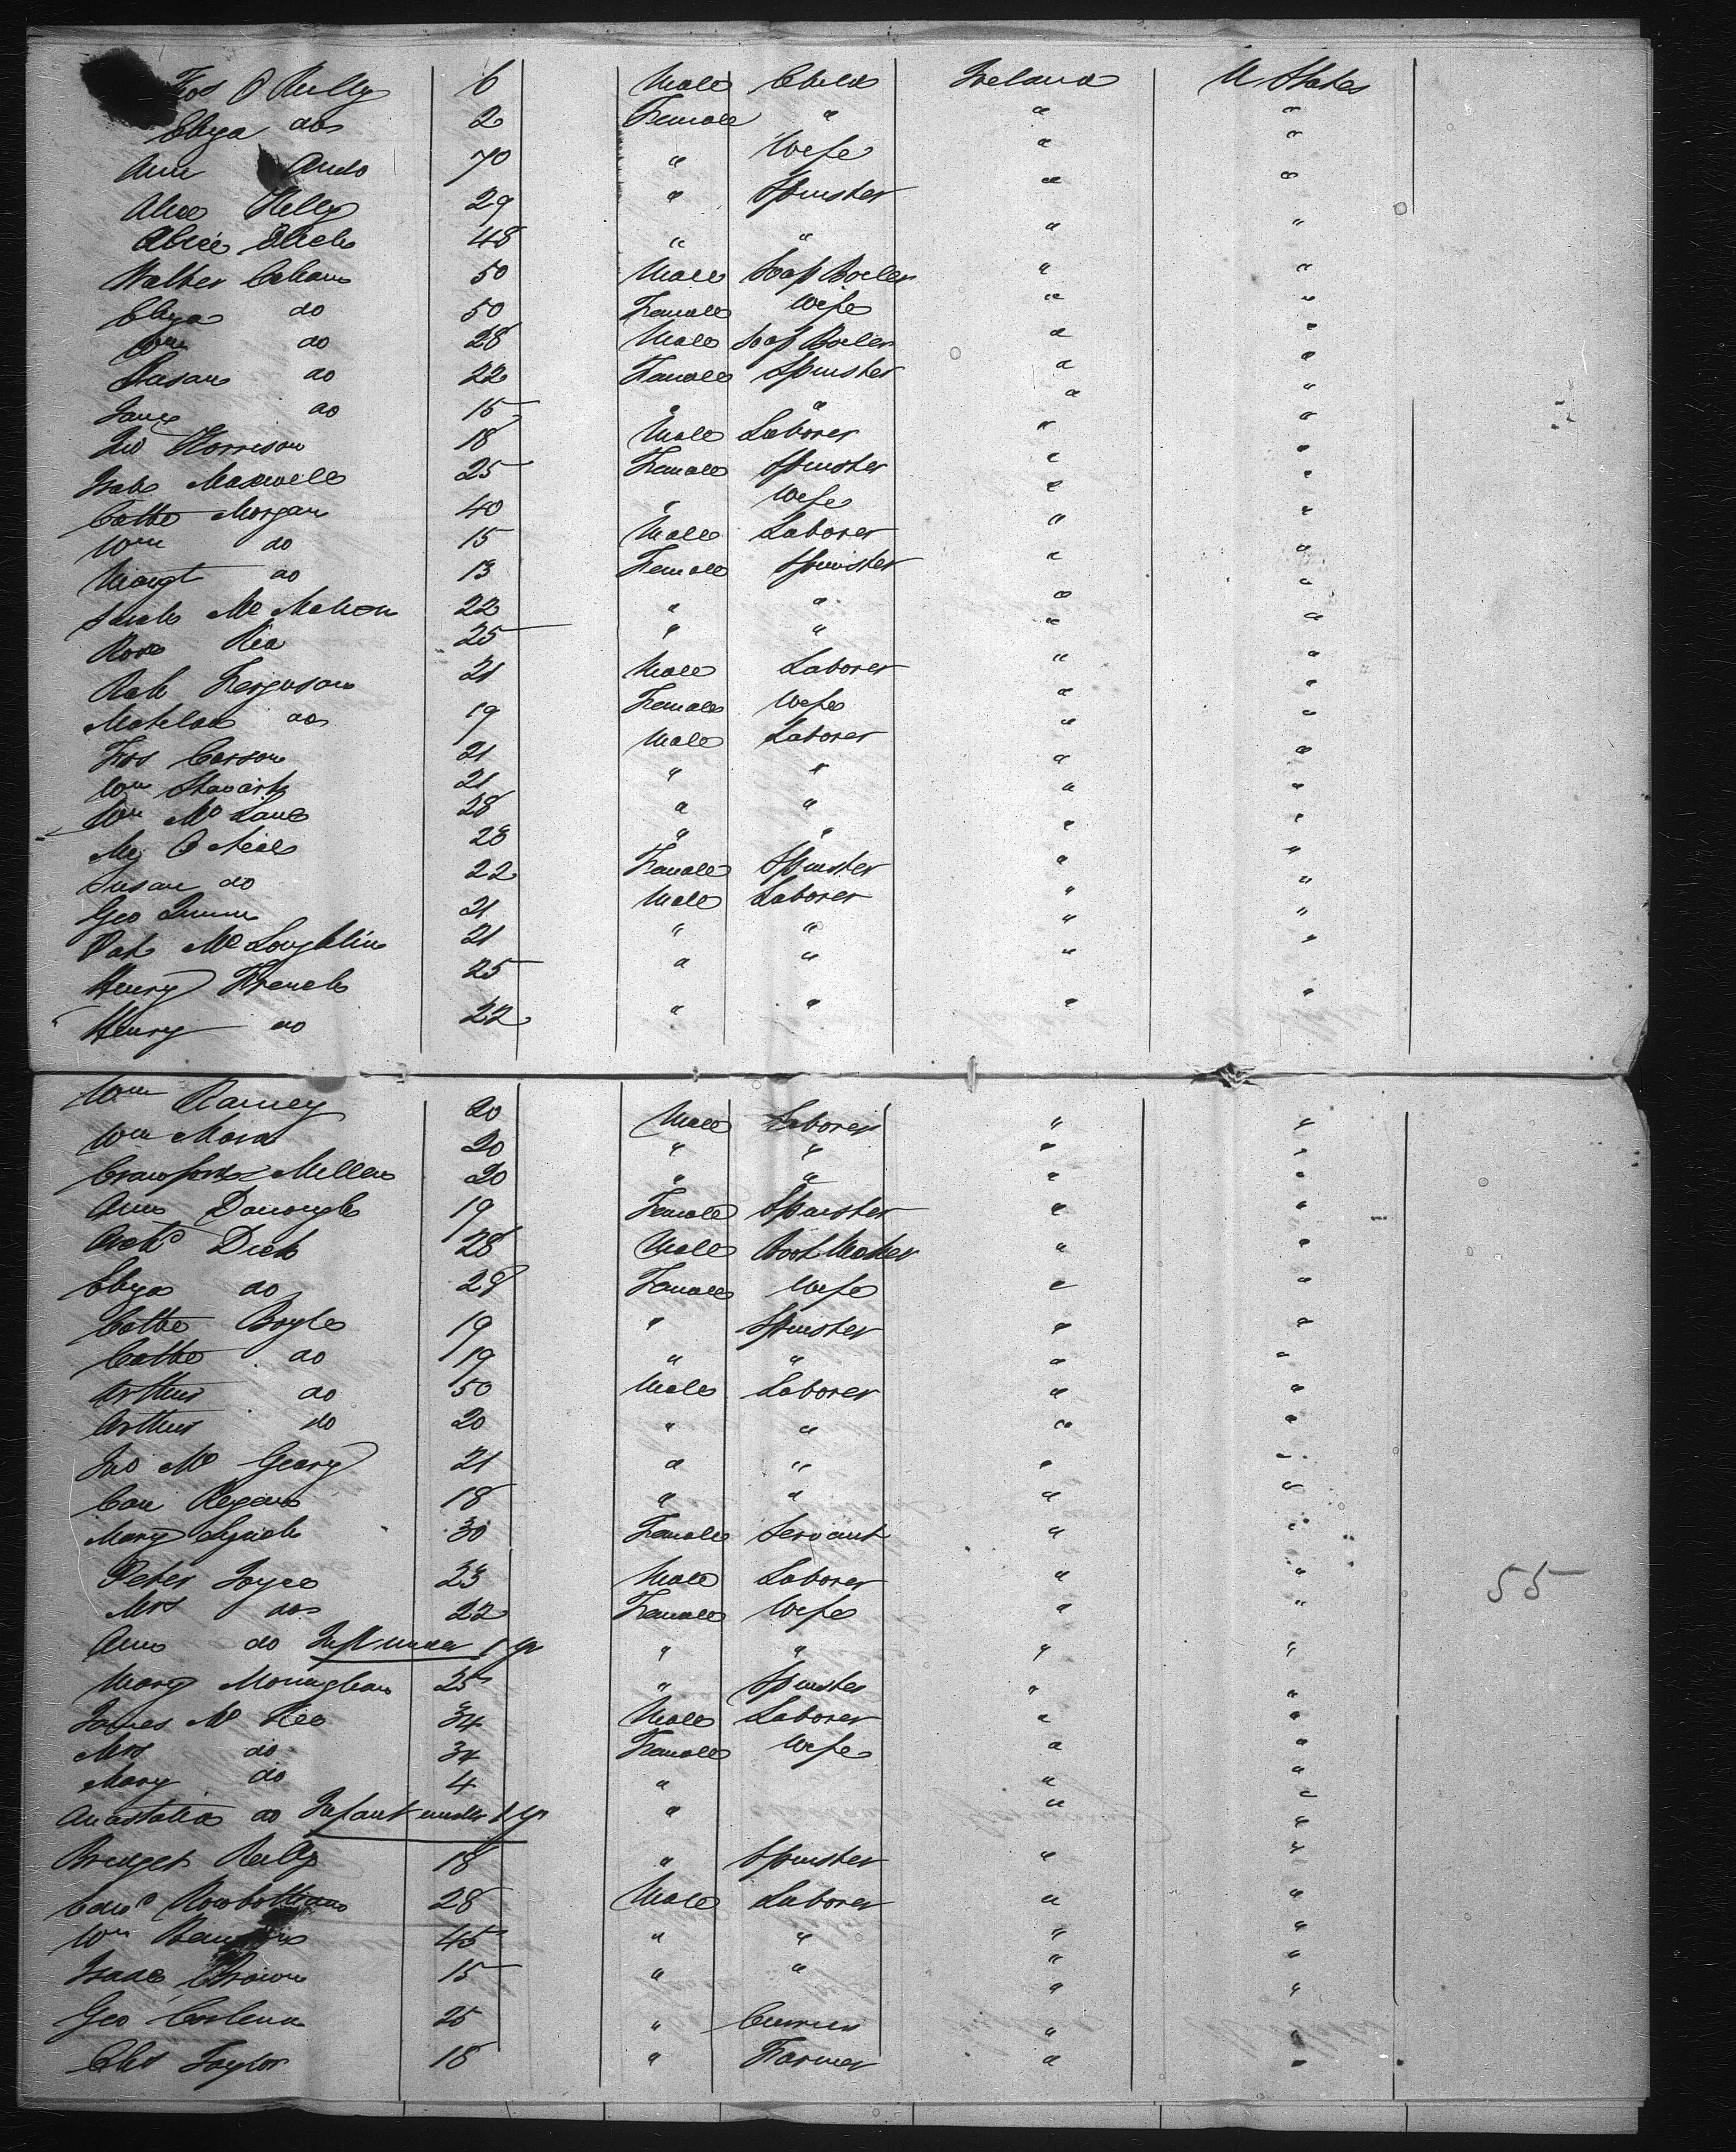 Jas O Reilly 6 Male Child Ireland U States
Eliza do 2 Female " " "
Ann 70 " Wife " "
Alice Kelly 29 " Spinster " "
Alice 48 " " " "
Walter 50 Male Soap Boiler " "
Eliza do 50 Female Wife " "
Wm do 28 Male Soap Boiler " "
Susan do 22 Female Spinster " "
Jane do 15 " " " "
Jno Morrison 18 Male Laborer " "
Isab Maxwell 25 Female Spinster " "
Cathe Morgan 40 " Wife " "
Wm do 15 Male Laborer " "
Margt do 13 Female Spinster " "
Sarah Mc Mahon 22 " " " "
Rose Rea 25 " " " "
Robt Ferguson 21 Male Laborer " "
Matilda do 19 Female Wife " "
Jas Carson 21 Male Laborer " "
Wm Stewart 21 " " " "
Wm Mc Lane 28 " " " "
O Neill 28 " " " "
Susan do 22 Female Spinster " "
Geo Quinn 21 Male Laborer " "
Pat Mc Loughlin 21 " " " "
Henry French 25 " " " "
Henry do 22 " " " "
Wm Ramey 20 Male Laborer " "
Wm 20 " " " "
Crawford Millen 20 " " " "
Ann 19 Female Spinster " "
Archd Dick 28 Male Boot Maker " "
Eliza do 28 Female Wife " "
Cathe Boyle 19 " Spinster " "
Cathe do 19 " " " "
Arthur do 50 Male Laborer " "
Arthur do 20 " " " "
Jno Mc Geary 21 " " " "
Con Regan 18 " " " "
Mary Lynch 30 Female Servant " "
Peter Joyce 23 Male Laborer " "
55
Mrs do 22 Female Wife " "
Ann do Inft under 1 yr " " " "
Mary Monaghan 25 " Spinster " "
James Mc Kee 34 Male Laborer " "
Mrs do 34 Female Wife " "
Mary do 4 " " "
Anastatia do Infant under 1 yr " " "
Bridget Reilly 18 " Spinster " "
Edwd Rowbotham 28 Male Laborer " "
Wm 45 " " " "
Isaac Brown 15 " " " "
Geo 25 " Currier " "
Taylor 18 " Farmer " "